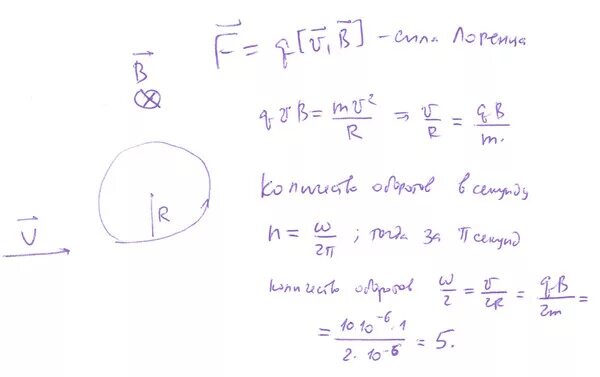 F⃗ = q[v⃗, B⃗] – сила Лоренца
B⃗
⊗
qvB = mv²/R ⇒ v/R = qB/m.
R
v⃗
Количество оборотов в секунду
n = ω/2π ; тогда за π секунд
количество оборотов ω/2 = v/2R = qB/2m =
= 10·10⁻⁶·1/2·10⁻⁶ = 5.